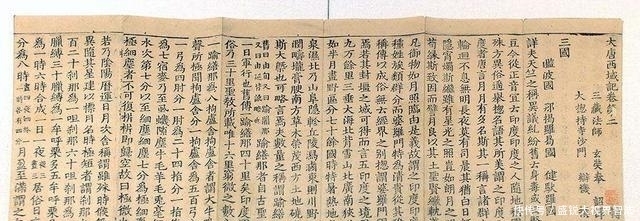 大唐西域記卷第二
三藏法師 玄奘奉 詔
大揔持寺沙門 辯機
三國
濫波國 那揭羅曷國 健馱羅
詳夫天竺之稱異議糺紛舊云身毒或
豆今從正音宜云印度印度之人隨地
殊方異俗遙舉總名語其所美謂之印
度者唐言月月有多名斯其一稱言諸
輪迴不息無明長夜莫有司晨其猶白
隱宵月斯繼雖有星光之照豈如朗月
苟緣斯致因而譬月良以其土聖賢繼
凡御物如月照臨由是義故謂之印度
種姓族類群分而婆羅門特為清貴從其
稱傳以成俗無云經界之別總謂婆羅
焉若其封疆之域可得而言五印度之
九万餘里三垂大海北背雪山北廣南狹
如半月畫野區分七十餘國時特暑熱
泉濕北乃山阜隱軫丘陵舄鹵東則川野
潤疇壟膏腴南方草木榮茂西方土地
斯大槩也可略言焉夫數量之稱謂踰
踰繕那者自古聖
一日軍行也舊傳一踰繕那四十里矣印度
俗乃三十里聖教所載唯十六里窮微之數
踰繕那為八拘盧舍拘盧舍者謂大牛
聲所極聞稱拘盧舍分一拘盧舍為五百
一弓為四肘分一肘為二十四指分一指
麥乃至虱蟣隙塵牛毛羊毛兔毫
水次第七分以至細塵細塵七分為極細
極細塵者不可復析析即歸空故曰極微
若乃陰陽曆運日月次舍稱謂雖殊時候
異隨其星建以標月名時極短者謂剎那
百二十剎那為一呾剎那六十呾剎那為
臘縛三十臘縛為一牟呼栗多五牟呼栗多
為一時六時合成一日一夜居俗
分為八時月盈至滿謂之